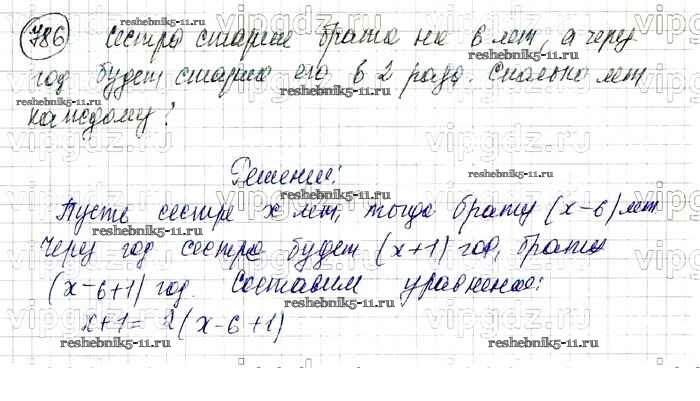 786 Сестра старше брата на 6 лет, а через
год будет старше его в 2 раза. Сколько лет
каждому?
Решение:
Пусть сестре x лет, тогда брату (x-6) лет
Через год сестре будет (x+1) год, брату
(x-6+1) год. Составим уравнение:
x+1=2(x-6+1)
reshebnik5-11.ru
vipgdz.ru